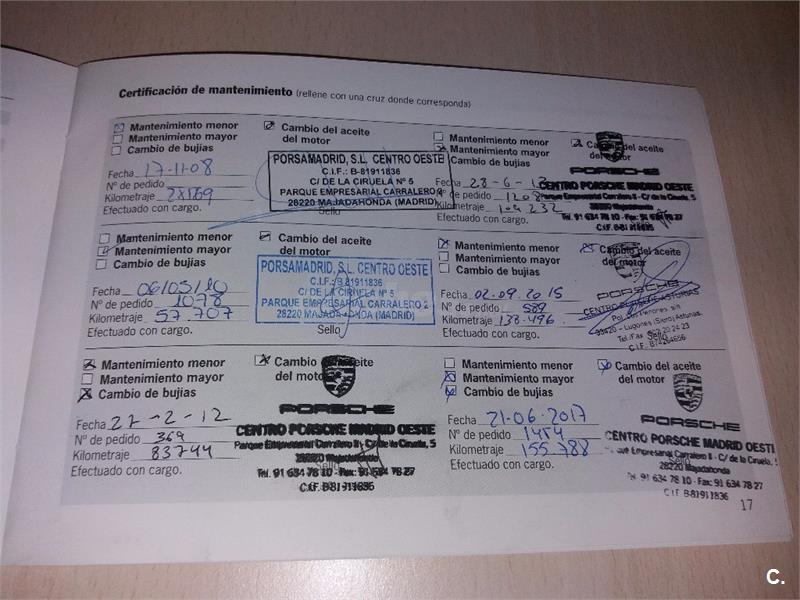 Certificación de mantenimiento (rellene con una cruz donde corresponda)
Mantenimiento menor
Mantenimiento mayor
Cambio de bujias
Cambio del aceite
del motor
Fecha 17-11-08
Nº de pedido
Kilometraje
Efectuado con cargo.
Sello
PORSAMADRID, S.L. CENTRO OESTE
C.I.F.: B-81911836
C/ DE LA CIRUELA Nº 5
PARQUE EMPRESARIAL CARRALERO 2
28220 MAJADAHONDA (MADRID)
Mantenimiento menor
Mantenimiento mayor
Cambio de bujias
Cambio del aceite
del motor
Fecha 06/05/10
Nº de pedido 1078
Kilometraje 57.707
Efectuado con cargo.
Sello
PORSAMADRID, S.L. CENTRO OESTE
C.I.F.: B-81911836
C/ DE LA CIRUELA Nº 5
PARQUE EMPRESARIAL CARRALERO 2
28220 MAJADAHONDA (MADRID)
Mantenimiento menor
Mantenimiento mayor
Cambio de bujias
Cambio del aceite
del motor
Fecha 27-2-12
Nº de pedido 369
Kilometraje 83744
Efectuado con cargo.
PORSCHE
CENTRO PORSCHE MADRID OESTE
Parque Empresarial Carralero II - C/ de la Ciruela, 5
28220 Majadahonda
Tel. 91 634 78 10 - Fax: 91 634 78 27
C.I.F. B-81911836
Mantenimiento menor
Mantenimiento mayor
Cambio de bujias
Cambio del aceite
del motor
Fecha 28-6-13
Nº de pedido 1208
Kilometraje 109232
Efectuado con cargo.
PORSCHE
CENTRO PORSCHE MADRID OESTE
Parque Empresarial Carralero II - C/ de la Ciruela, 5
28220 Majadahonda
Tel. 91 634 78 10 - Fax: 91 634 78 27
C.I.F. B-81911836
Mantenimiento menor
Mantenimiento mayor
Cambio de bujias
Cambio del aceite
del motor
Fecha 02.09.2015
Nº de pedido 589
Kilometraje 138.496
Efectuado con cargo.
Sello
PORSCHE
CENTRO PORSCHE ASTURIAS
33420 - Lugones (Siero) Asturias
Mantenimiento menor
Mantenimiento mayor
Cambio de bujias
Cambio del aceite
del motor
Fecha 21-06-2017
Nº de pedido 1454
Kilometraje 155.788
Efectuado con cargo.
Sello
PORSCHE
CENTRO PORSCHE MADRID OESTE
Parque Empresarial Carralero II - C/ de la Ciruela, 5
28220 Majadahonda
Tel. 91 634 78 10 - Fax: 91 634 78 27
C.I.F. B-81911836
17
C.